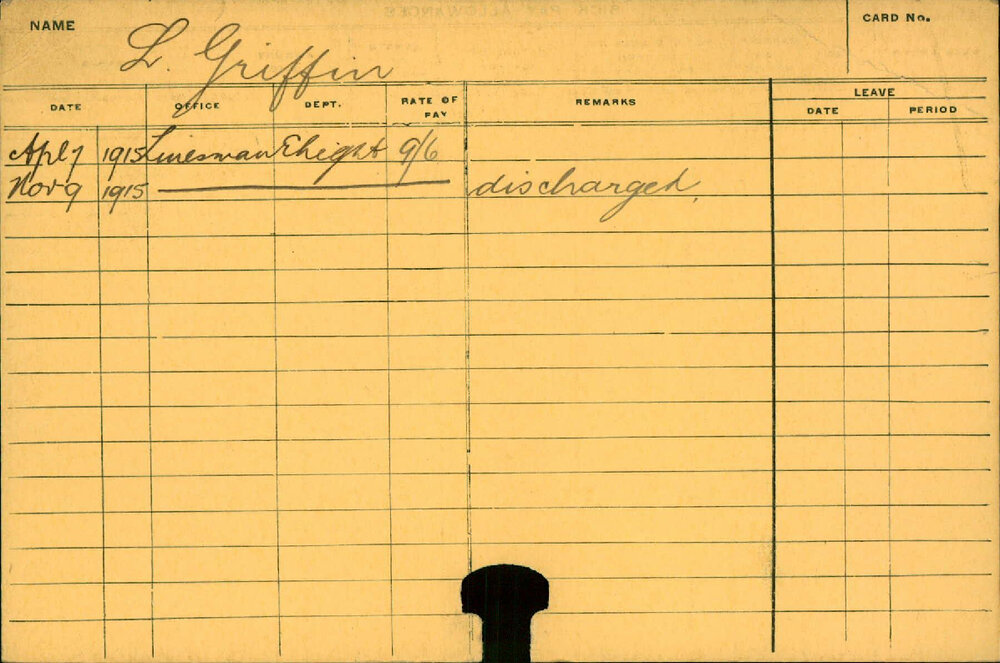 NAME L. Griffin CARD No.
DATE OFFICE DEPT. RATE OF PAY REMARKS LEAVE
DATE PERIOD
Apl 7 1915 Linesman Elight 9/6
Nov 9 1915 discharged.